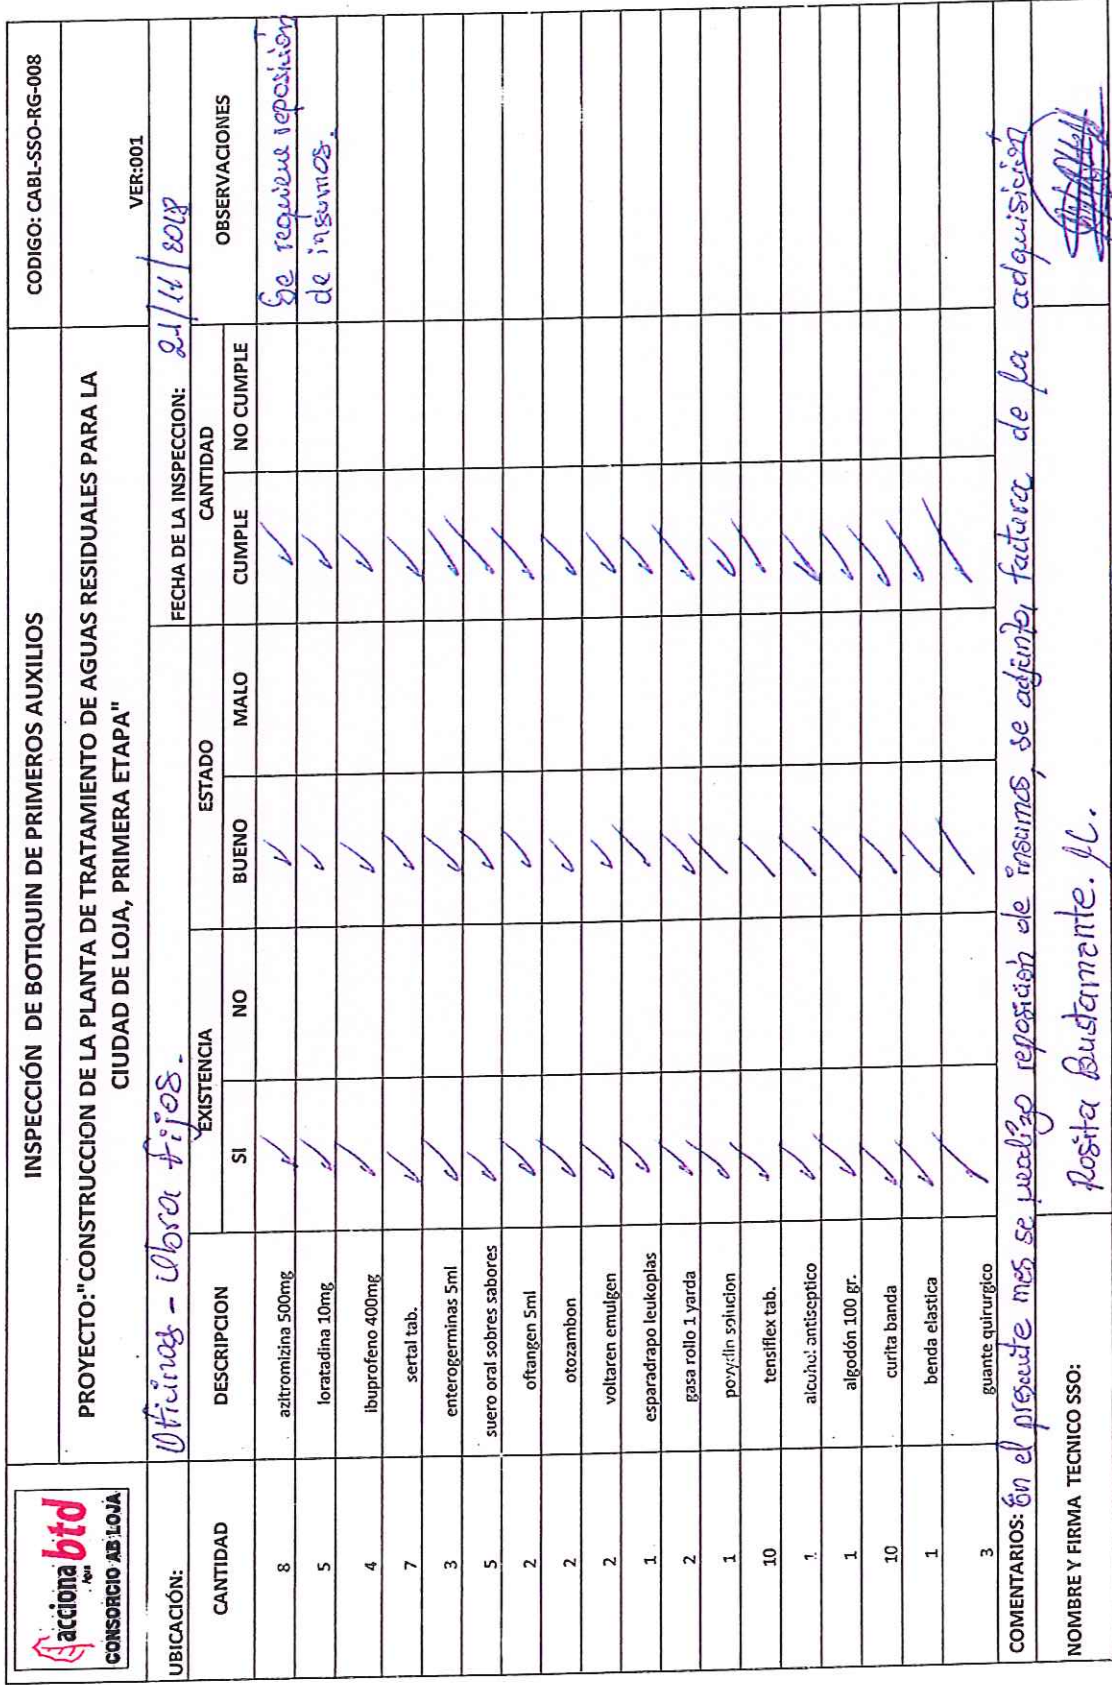 acciona btd
Agua
CONSORCIO AB LOJA
INSPECCIÓN DE BOTIQUIN DE PRIMEROS AUXILIOS
CODIGO: CABL-SSO-RG-008
PROYECTO:"CONSTRUCCION DE LA PLANTA DE TRATAMIENTO DE AGUAS RESIDUALES PARA LA
CIUDAD DE LOJA, PRIMERA ETAPA"
VER:001
UBICACIÓN: Oficinas - Obra fijos. FECHA DE LA INSPECCION: 21/11/2018
CANTIDAD DESCRIPCION EXISTENCIA ESTADO CANTIDAD OBSERVACIONES
SI NO BUENO MALO CUMPLE NO CUMPLE
8 azitromizina 500mg ✓ ✓ ✓ Se requiere reposición
5 loratadina 10mg ✓ ✓ ✓ de insumos.
4 ibuprofeno 400mg ✓ ✓ ✓
7 sertal tab. ✓ ✓ ✓
3 enterogerminas 5ml ✓ ✓ ✓
5 suero oral sobres sabores ✓ ✓ ✓
2 oftangen 5ml ✓ ✓ ✓
2 otozambon ✓ ✓ ✓
2 voltaren emulgen ✓ ✓ ✓
1 esparadrapo leukoplas ✓ ✓ ✓
2 gasa rollo 1 yarda ✓ ✓ ✓
1 povydin solucion ✓ ✓ ✓
10 tensiflex tab. ✓ ✓ ✓
1 alcohol antiseptico ✓ ✓ ✓
1 algodón 100 gr. ✓ ✓ ✓
10 curita banda ✓ ✓ ✓
1 benda elastica ✓ ✓ ✓
3 guante quirurgico ✓ ✓ ✓
COMENTARIOS: En el presente mes se realizo reposición de insumos, se adjunto, factura de la adquisición
NOMBRE Y FIRMA TECNICO SSO: Rosita Bustamante. JC.